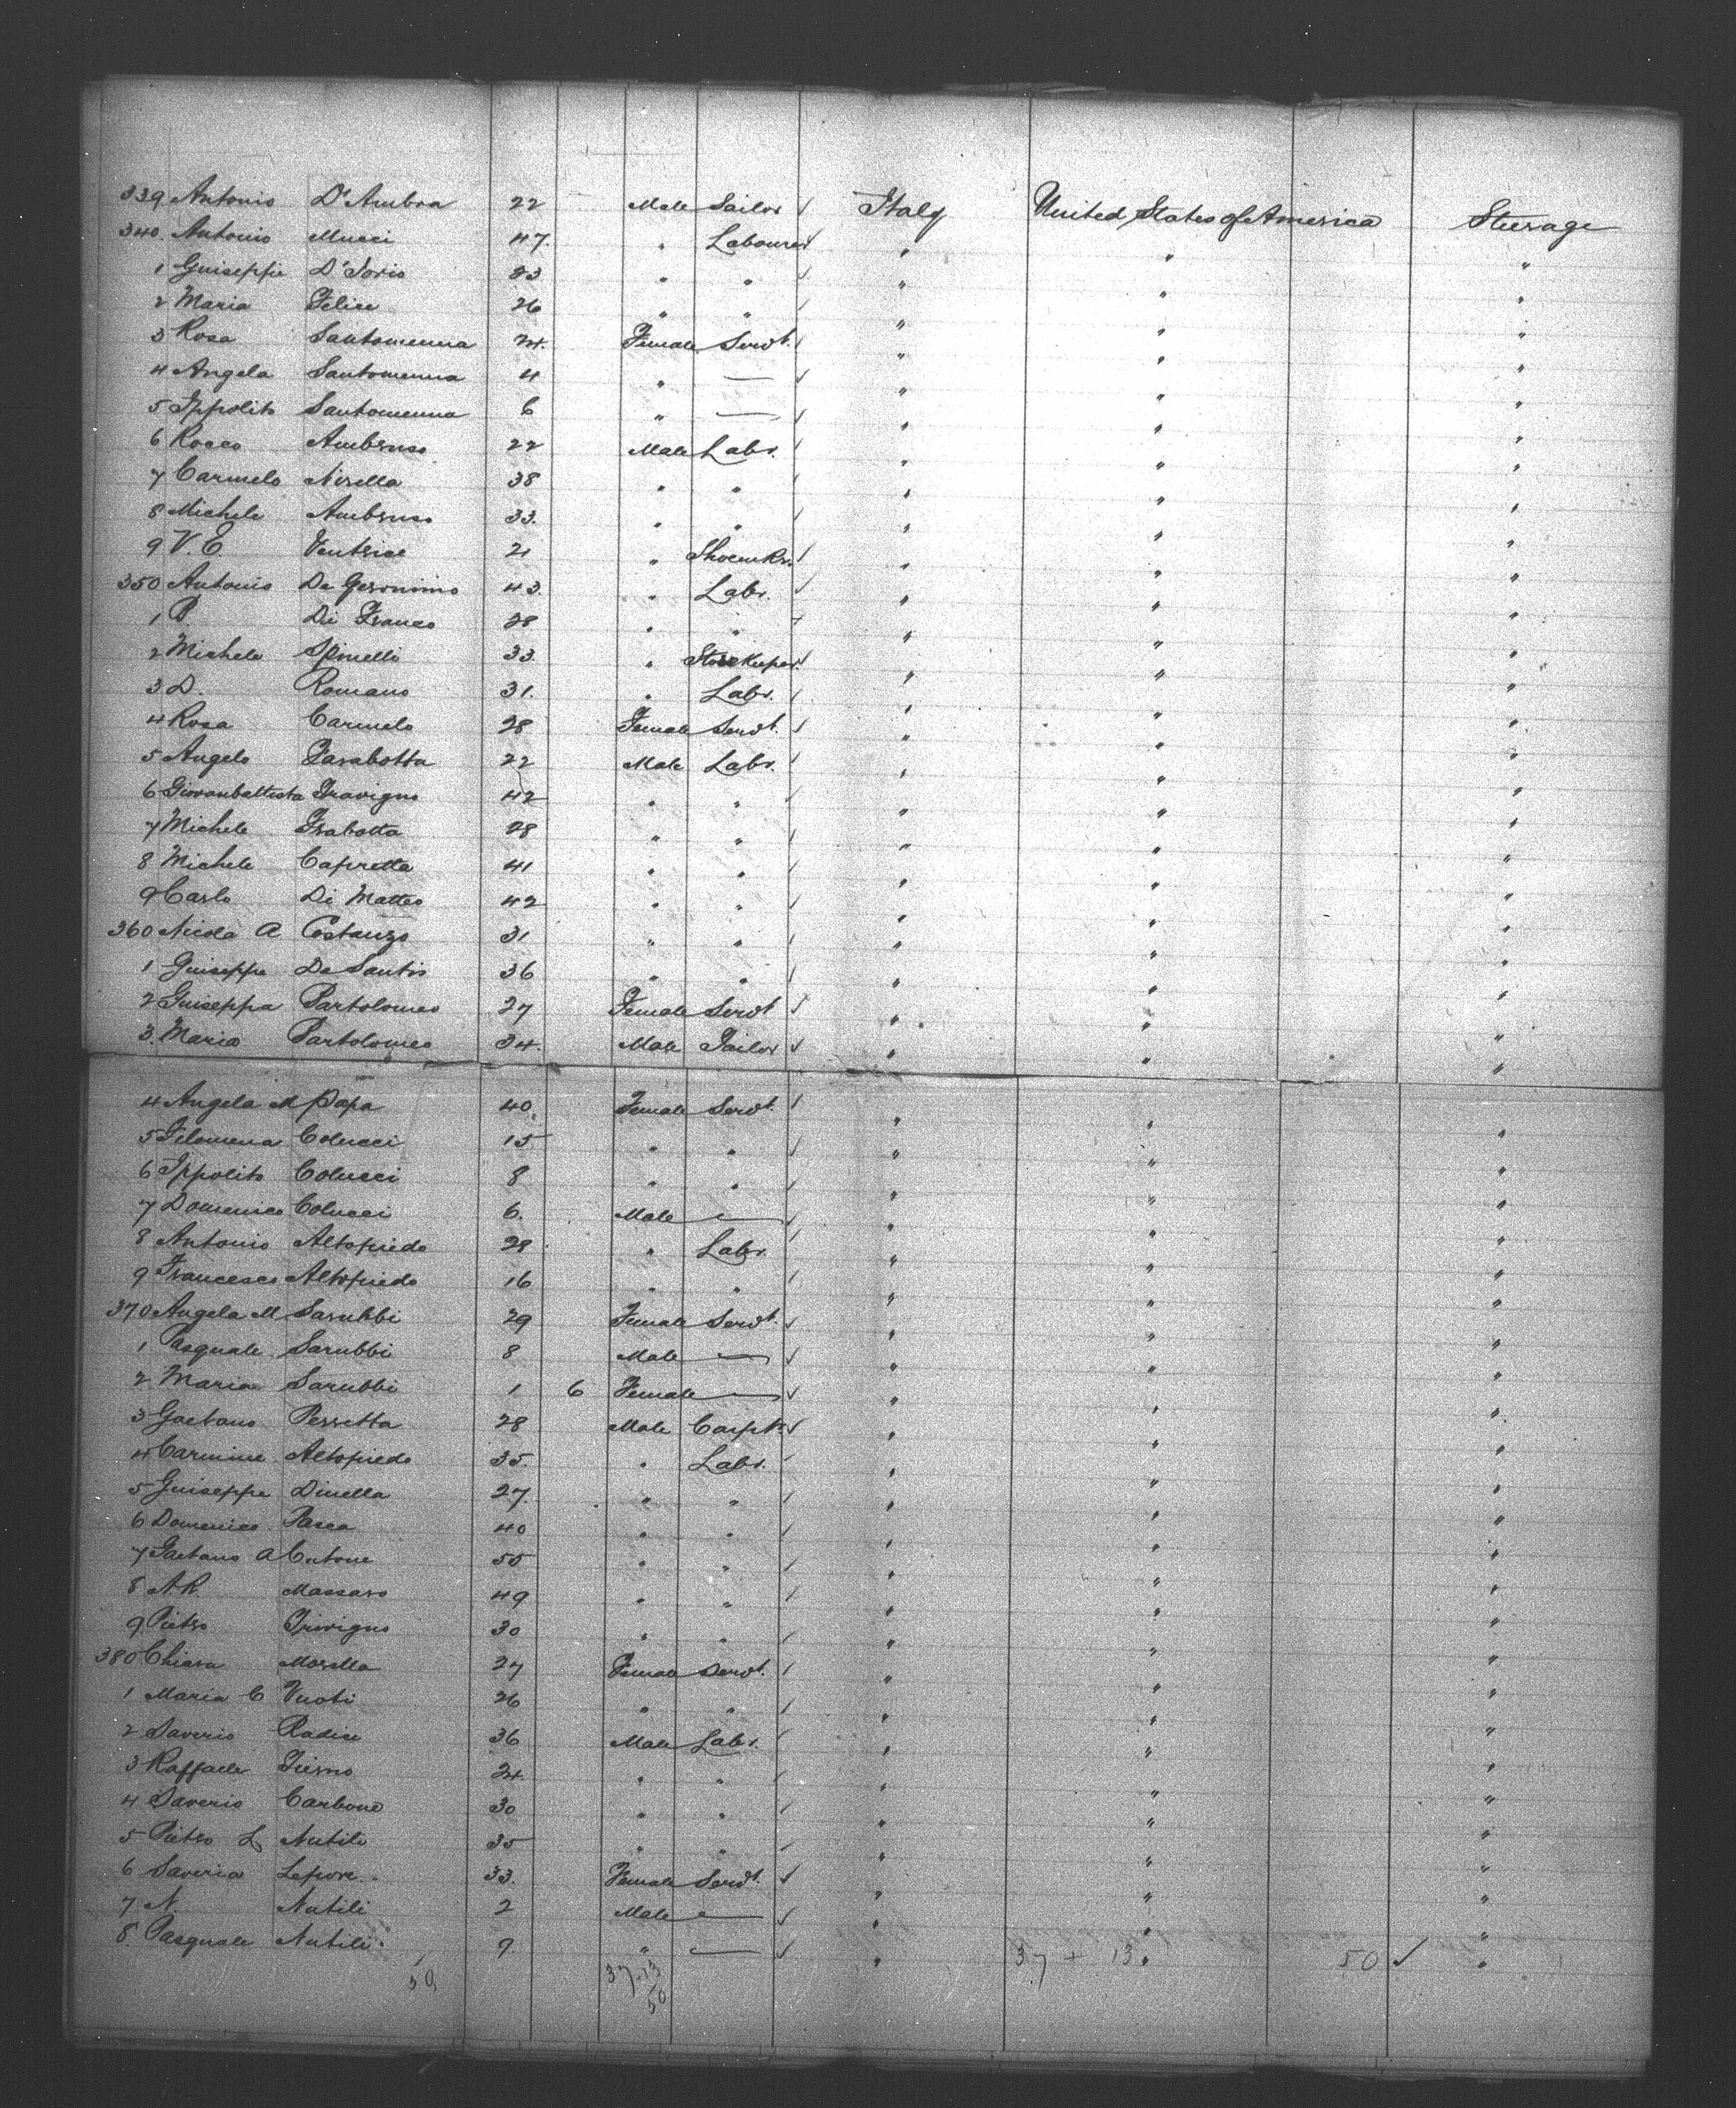 339 Antonio D'Ambra 22 Male Sailor ✓ Italy United States of America Steerage
340. Antonio Mucci 47. " Labourer ✓ " " "
1 Guiseppe D'Iorio 23 " " ✓ " " "
2 Maria Felice 26 " " ✓ " " "
3 Rosa Santomenna 24. Female Servt. ✓ " " "
4 Angela Santomenna 4 " — ✓ " " "
5 Ippolito Santomenna 6 " — ✓ " " "
6 Rocco Ambruso 22 Male Labr. ✓ " " "
7 Carmelo Nisella 38 " " ✓ " " "
8 Michele Ambruso 33. " " ✓ " " "
9 V. E. Ventrice 21 " Shoemkr. ✓ " " "
350 Antonio De Geronimo 43 " Labr. ✓ " " "
1 P. Di Franco 28 " " ✓ " " "
2 Michele Spinelli 33. " Storekeeper. ✓ " " "
3 D. Romano 31. " Labr. ✓ " " "
4 Rosa Carmelo 28 Female Servt. ✓ " " "
5 Angelo Farabotta 22 Male Labr. ✓ " " "
6 Giovanbattista Travigno 42 " " ✓ " " "
7 Michele Frabotta 28 " " ✓ " " "
8 Michele Capretta 41 " " ✓ " " "
9 Carlo Di Matteo 42 " " ✓ " " "
360 Nicola A Costanzo 31 " " ✓ " " "
1 Guiseppe De Santis 36 " " ✓ " " "
2 Guiseppa Bartolomeo 27 Female Servt ✓ " " "
3. Maria Bartolomeo 34. Male Tailor ✓ " " "
4 Angela M Papa 40. Female Servt. ✓ " " "
5 Filomena Colucci 15 " " ✓ " " "
6 Ippolito Colucci 8 " " ✓ " " "
7 Domenico Colucci 6. Male — ✓ " " "
8 Antonio Altopiedo 28 " Labr. ✓ " " "
9 Francesco Altopiedo 16 " " ✓ " " "
370 Angela M Sarubbi 29 Female Servt. ✓ " " "
1 Pasquale Sarubbi 8 Male — ✓ " " "
2 Maria Sarubbi 1 6 Female — ✓ " " "
3 Gaetano Perretta 28 Male Carptr ✓ " " "
4 Carmine Altopiedo 35. " Labr. ✓ " " "
5 Guiseppe Dinella 27. " " ✓ " " "
6 Domenico Pasca 40 " " ✓ " " "
7 Gaetano A Cutone 55 " " ✓ " " "
8 A R. Massaro 49 " " ✓ " " "
9 Pietro Trivigno 30 " " ✓ " " "
380 Chiara Morella 27 Female Servt. ✓ " " "
1 Maria C Vuoti 26 " " ✓ " " "
2 Saverio Radice 36 Male Labr. ✓ " " "
3 Raffaele Fierro 24. " " ✓ " " "
4 Saverio Carbone 30 " " ✓ " " "
5 Pietro L Nutili 35 " " ✓ " " "
6 Saveria Lepore. 33. Female Servt. ✓ " " "
7 N. Nutili 2 Male — ✓ " " "
8. Pasquale Nutili. 9. " — ✓ " " "
50 37-13 37 + 13 50 ✓
50